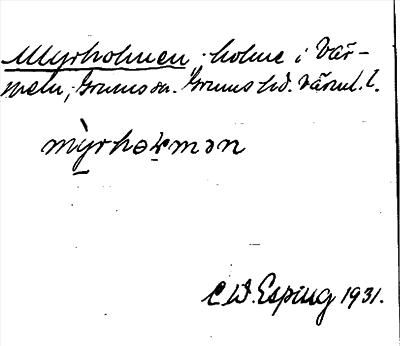 Myrholmen, holme i Vär-
meln, Grums sn. Grums hd. Värml. l.
mỳrhəɭmən
C W. Esping 1931.